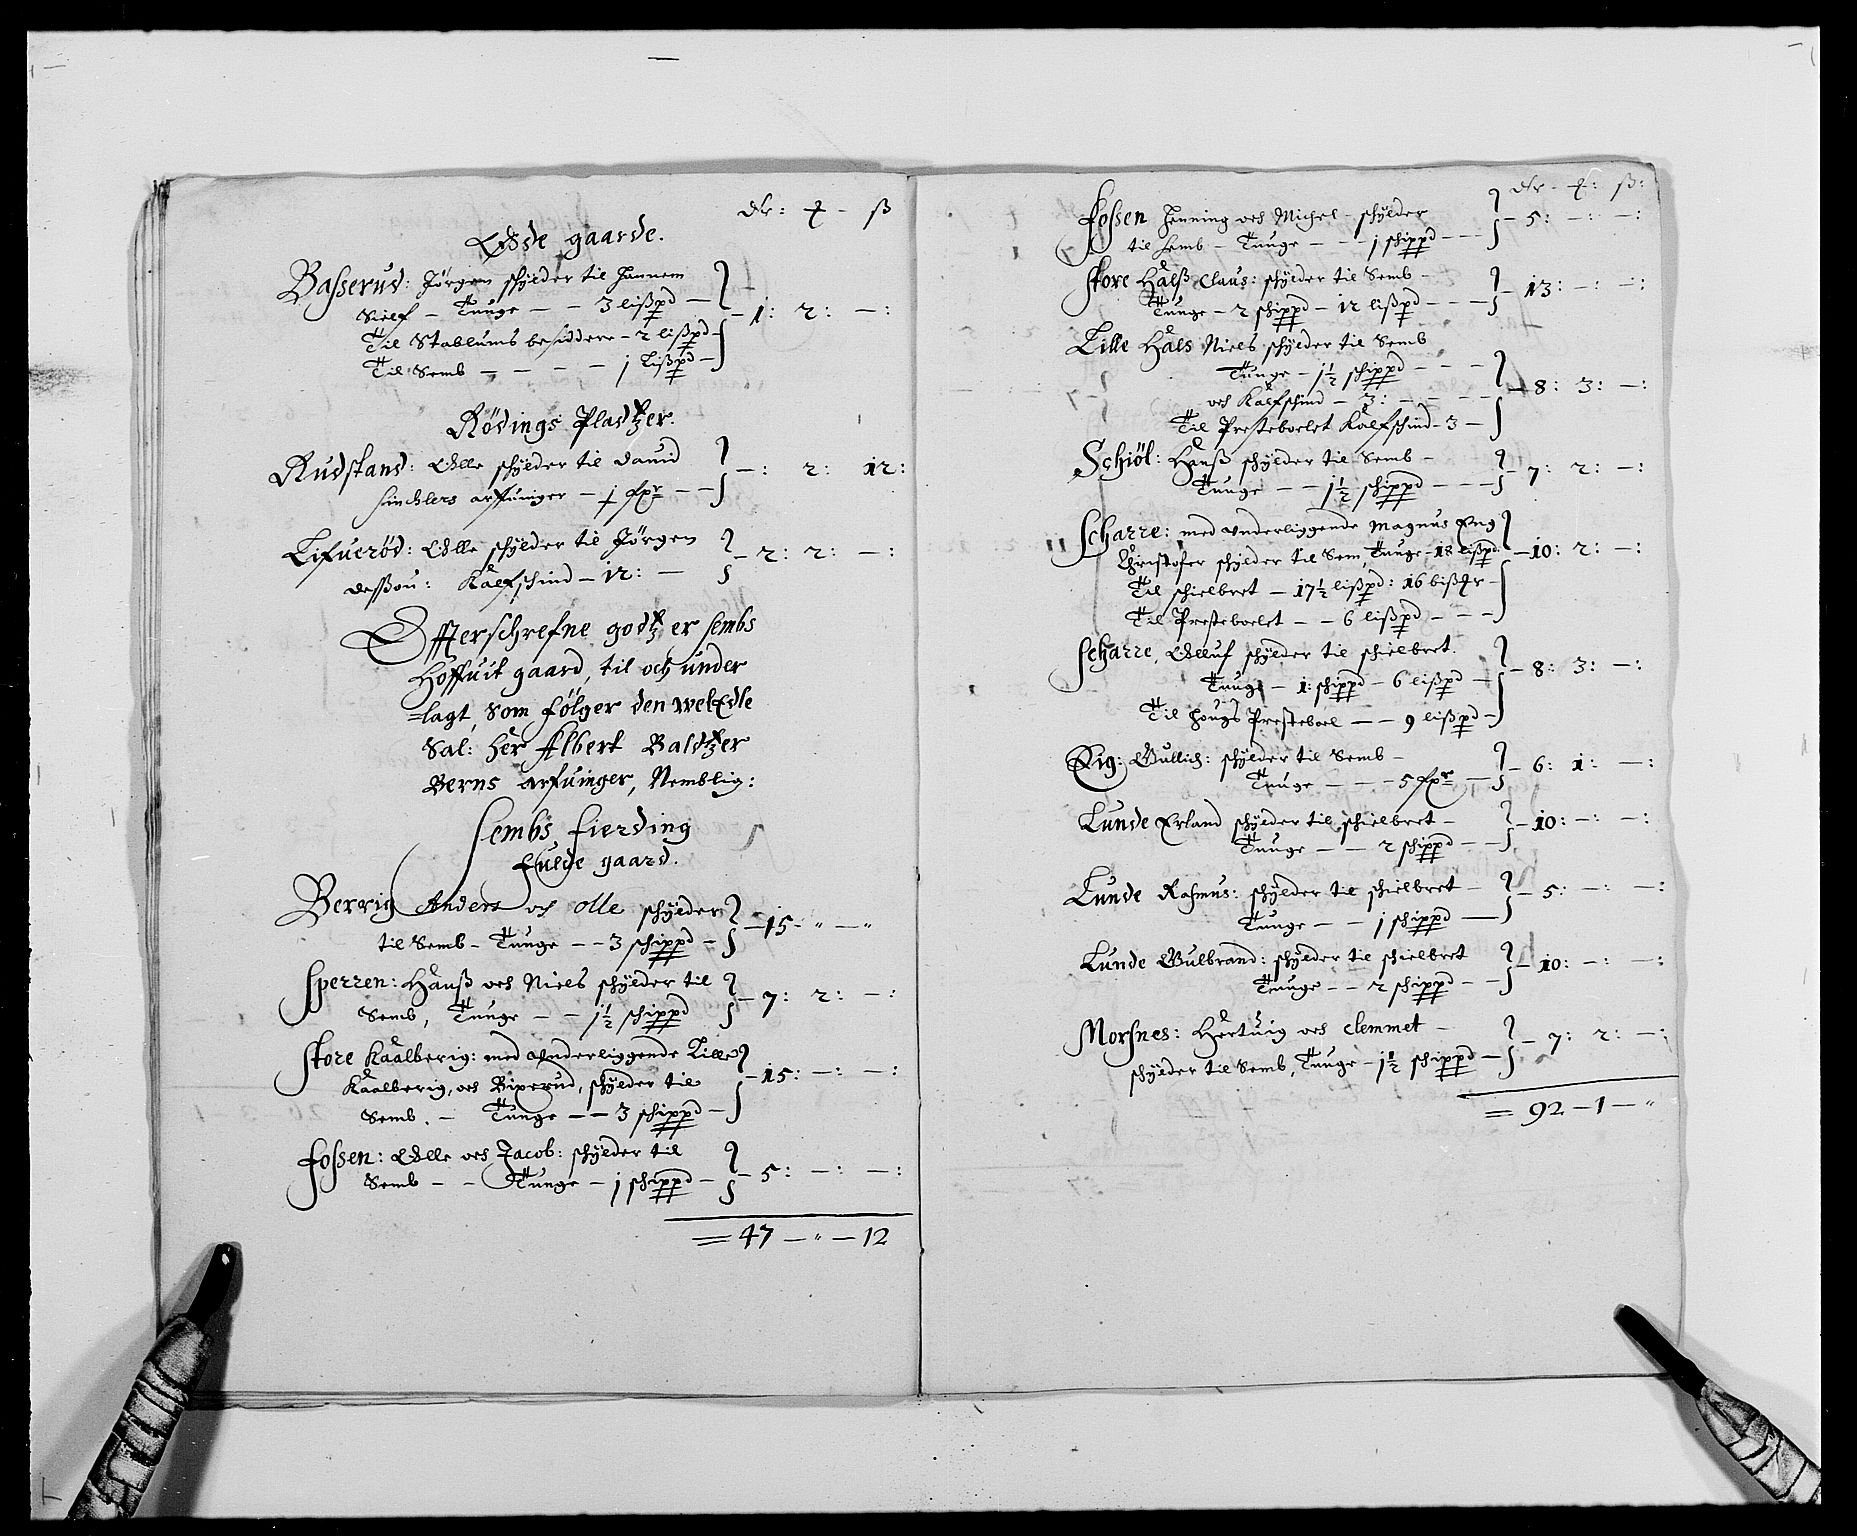 dlr: ꝶ - ß
Øde gaarde.
Basserud: Jörgen schylder til hannem
sielf - Tunge - - 3 lißpd - - 1: 2: - :
Til Stablums besiddere - 2 lißpd -
Til Semb - - - - 1 Lißpd -
Rödings Pladtzer.
Rudstand: Olle schylder til Dauid - : 2: 12:
Sinchlers arfuinger - 1 fpr - -
Lifueröd: Olle schylder til Jörgen - 2: 2: - :
: Kalfschind - 12: -
Offterschrefne godtz er Sembs
Hoffuit gaard, til och under
=lagt, som fölger den welEdle
Sal: Her Albert Baldtzer
Berns arfuinger, Nemblig:
Sembs fierding
fulde gaard.
Berrig Anders och Olle schylder - 15 - " - "
til Semb - Tunge - - 3 schippd -
Sperren: Hanß och Niels schylder til - 7: 2: - :
Semb, Tunge - - 1½ schippd
Store Kaalberig: med Underliggende Lille
Kaalberig, och Biperud, schylder til - 15: - : - :
Semb. - Tunge - - 3 schippd -
Fossen: Olle och Jacob: schylder til - 5: - : - :
Semb - - Tunge - 1 schippd -
= 47 - " - 12
dlr - ꝶ: ß:
Fossen Henning och Michel - schylder - 5: - : - :
til Semb - Tunge - - - 1 schippd - - -
Store Halß Claus: schylder til Semb - - 13: - : - :
Tunge - 2 schippd - 12 lißpd - - -
Lille Hals Niels schylder til Semb
Tunge - 1½ schippd - - - - 8: 3: - :
och Kalfschind - 3: - - - -
Til Presteboelet Kalfschind - 3 -
Schiöl: Hanß schylder til Semb - - 7: 2: - :
Tunge - - 1½ schippd - - -
Scharre: med Underliggende Magnus Eng
Christofer schylder til Sem, Tunge - 18 lißpd - 10: 2: - :
Til schielbret - 17½ lißpd: 16 -
Til Presteboelet - - 6 lißpd - - -
Scharre, Olluf schylder til schielbret.
Tunge - 1: schippd - 6 lißpd - - 8: 3: - :
Til Hougs Presteboel - - 9 lißpd -
Eig: Gullich: schylder til Semb - - 6: 1: - :
Tunge - - - 5 fpr -
Lunde Erland schylder til schielbret - - 10: - : - :
Tunge - - 2 schippd - -
Lunde Rasmus: schylder til schielbret - - 5: - : - :
Tunge - - 1 schippd -
Lunde Gulbrand: schylder til schielbret - 10: - : - :
Tunge - - 2 schippd - -
Morsnes: Hertuig och Clemmet - - 7: 2: - :
schylder til Semb, Tunge - 1½ schippd -
= 92 - 1 - "